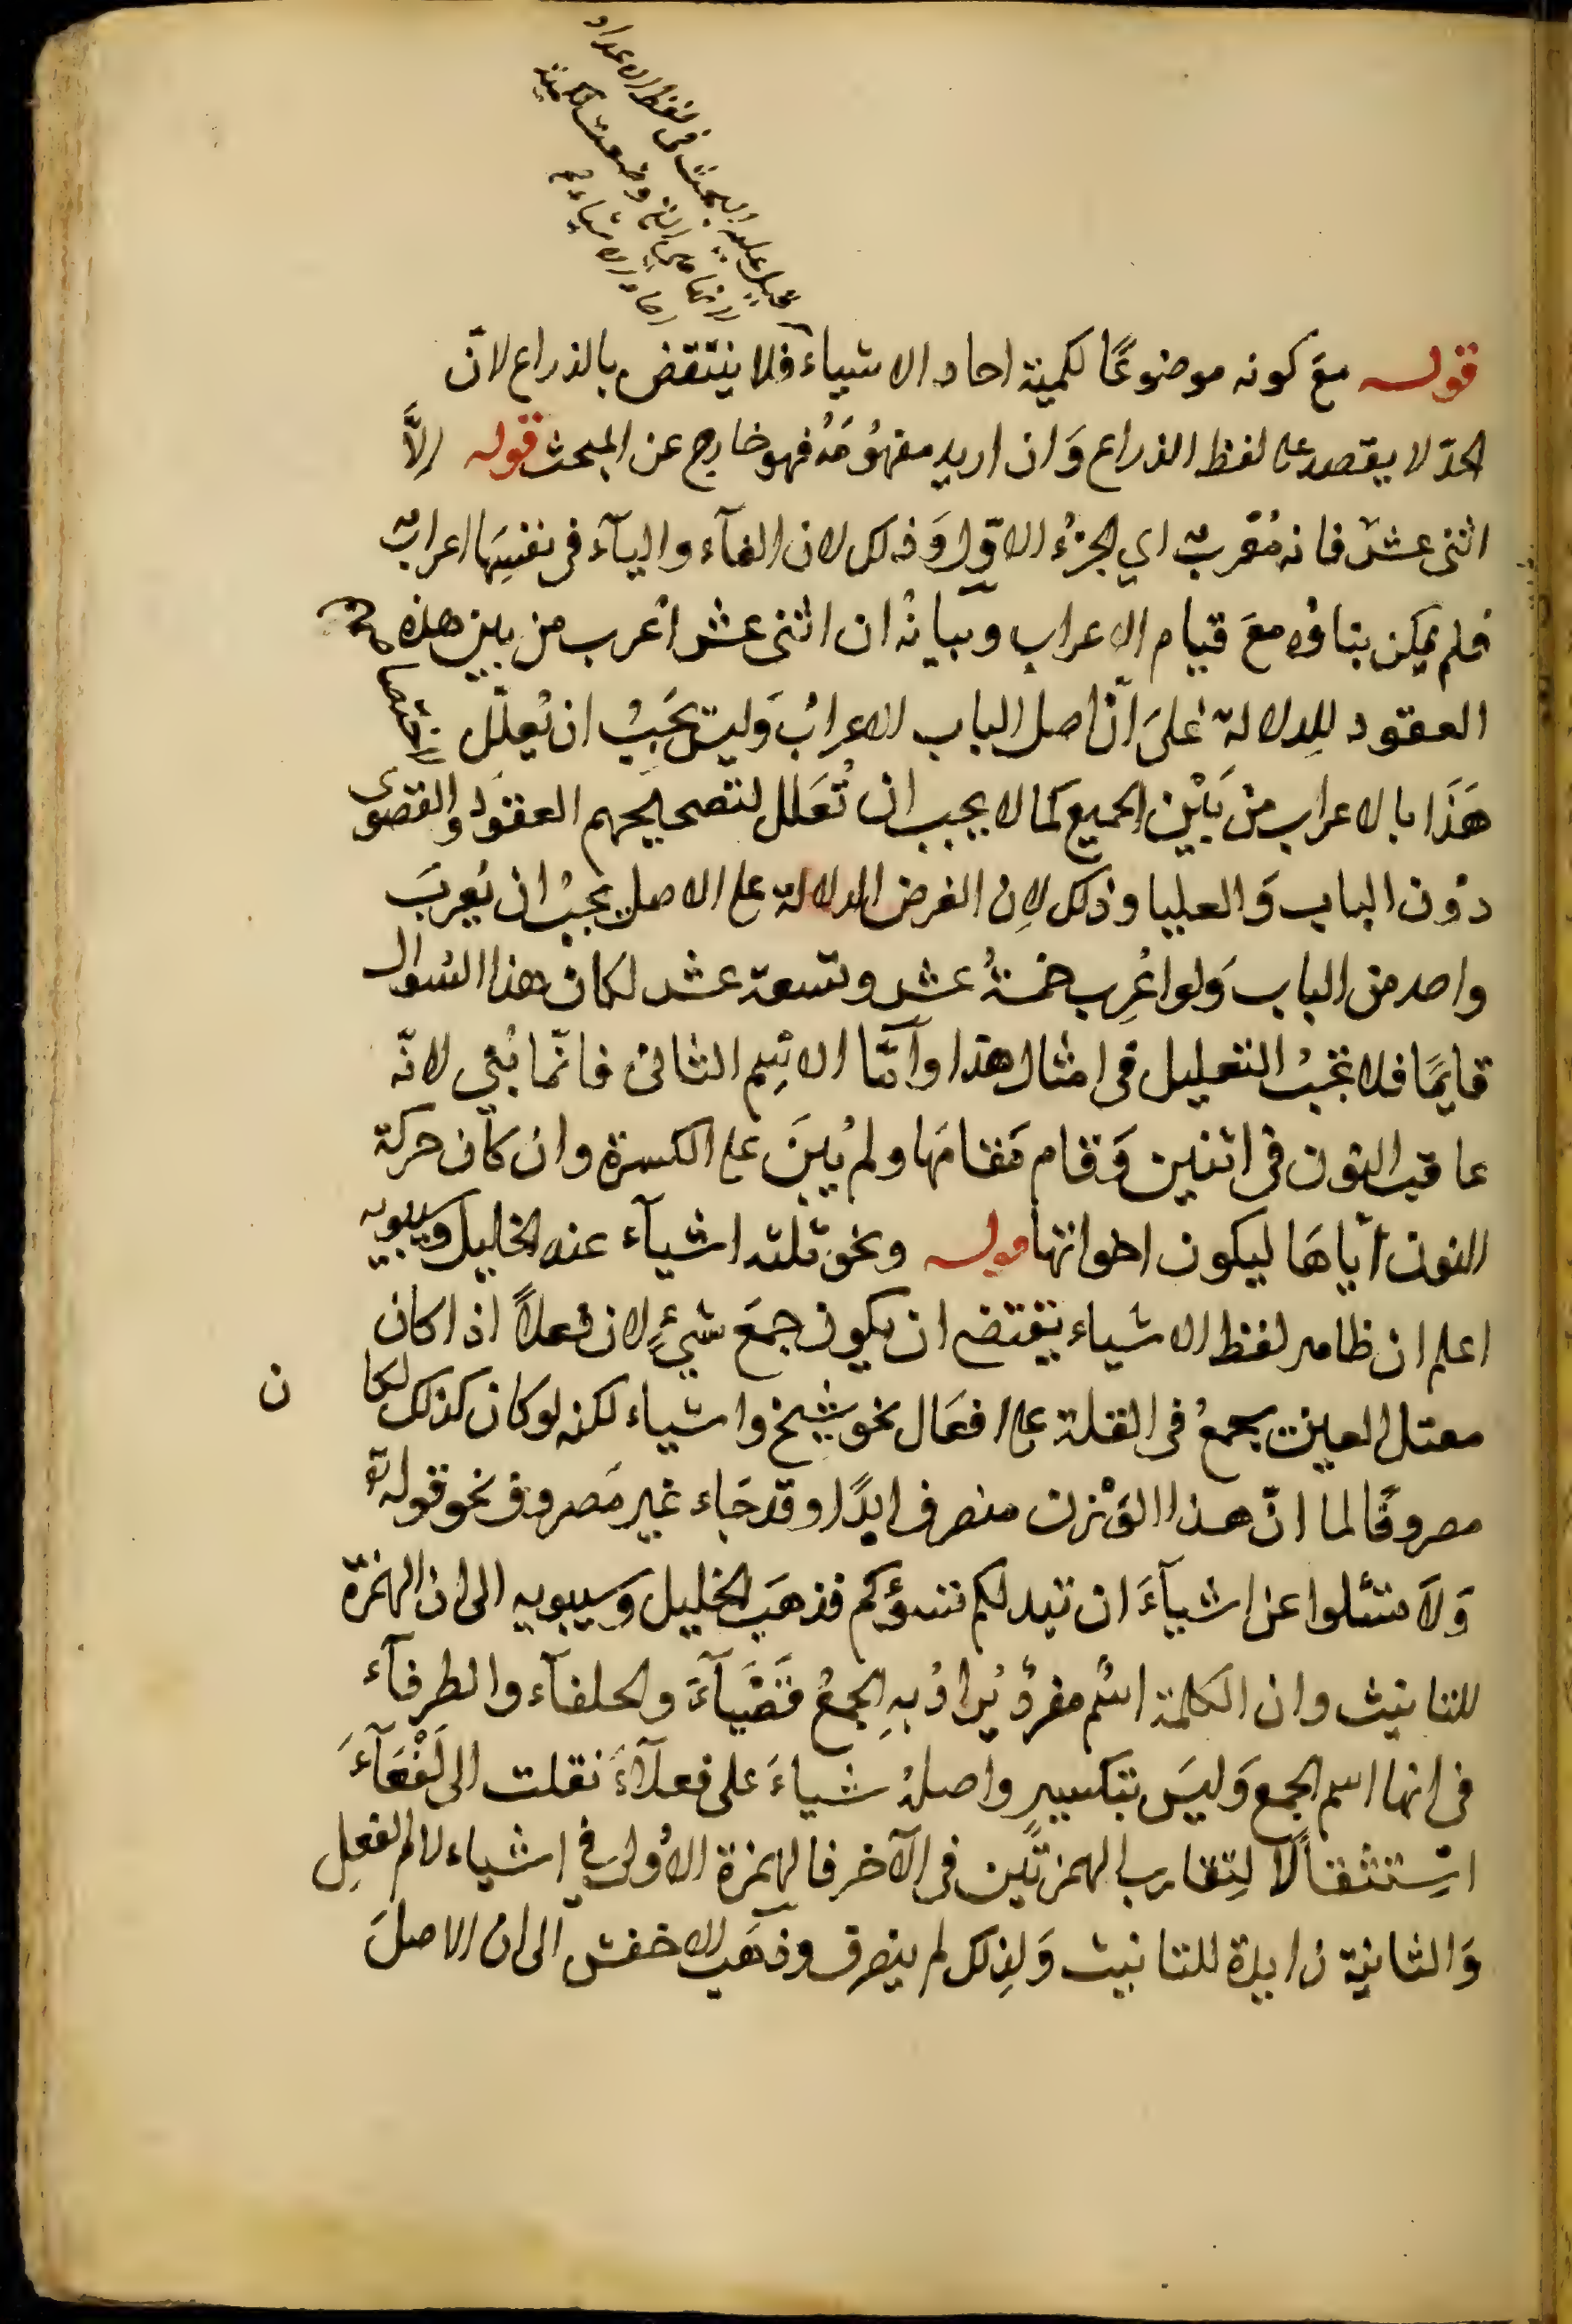 قوله معَ كونه موضوعًا لكمية احاد الاشياء فلا ينتقض بالذراع لانّ
الحدّ لا يقصد على لفظ الذراع وَان اريد مفهُومَهُ فهو خارج عن المبحث قوله الاَّ
اثنى عشر فانه مُعْربٌ اي الجزءُ الاوّل وَذلك لان الفآء واليآء فى نفسِهَا اعرابٌ
فلم يمكن بناؤه معَ قيام الاعراب وبيانُه ان اثنى عشر اُعْرب من بين هذه
العقود لِلدلالة عَلىَ انّ اصل الباب الاعرابُ وَليسَ يَجبُ ان يُعلّل
هَذَا بالاعراب من بَيْن الجميع كما لا يجب ان تُعَلل لتصحيحهم العقَود والقصوى
دوُن الباب وَالعليا وذلك لِان الغرض الدلالة على الاصل يجبُ ان يُعربَ
واحد من الباب وَلو اعُرِب خمسةُ عشر وتسعة عشر لكان هذا السُوال
قايمًا فلا يَجبُ التعليل فى امثال هذا وَامّا الاسِم الثانى فانّما بُنى لانّه
عاقب النون فى اثنين وَقام مَقامَها ولم يُبنَ على الكسرة وان كاَن حركة
النون اياهَا ليكون اخواتها قوله ونحو ثلثه اشيآء عند الخليل وسيبويه
اعلم ان ظاهر لفظ الاشياء يقتضى ان يكون جمعَ شيْءٍ لان فعلاً اذا كان
معتل العين يجمعُ فى القلة على افعَال نحو شيخ واشياء لكنه لو كان كذلك لكان
مصروفًا لما انّ هذا الوَزن منصرف ابدًا وقد جَاء غير مَصروف نحو قوله تع
وَلا تسئلوا عن اشيآءَ ان تبد لكم تسؤكم فذهَب الخليل وَسيبويه الى ان الهمزة
للتانيث وان الكلمة اسْم مفردٌ يُرادُ بهِ الجمعُ فَقَصْبَآءَ والحلفآء والطرفآء
فى انها اسم الجمع وَليسَ بتكسيرٍ واصلهُ شياءَ على فعلآءَ نقلت الى لَفْعَآءَ
استثقالًا لِتقارب الهمزتَين فى الآخر فالهمزة الاُولى في اشياء لام الفعِل
وَالثانية زايدة للتانيث وَلِذلك لم ينصرف وذهَب الاخفش الى ان الاصلَ